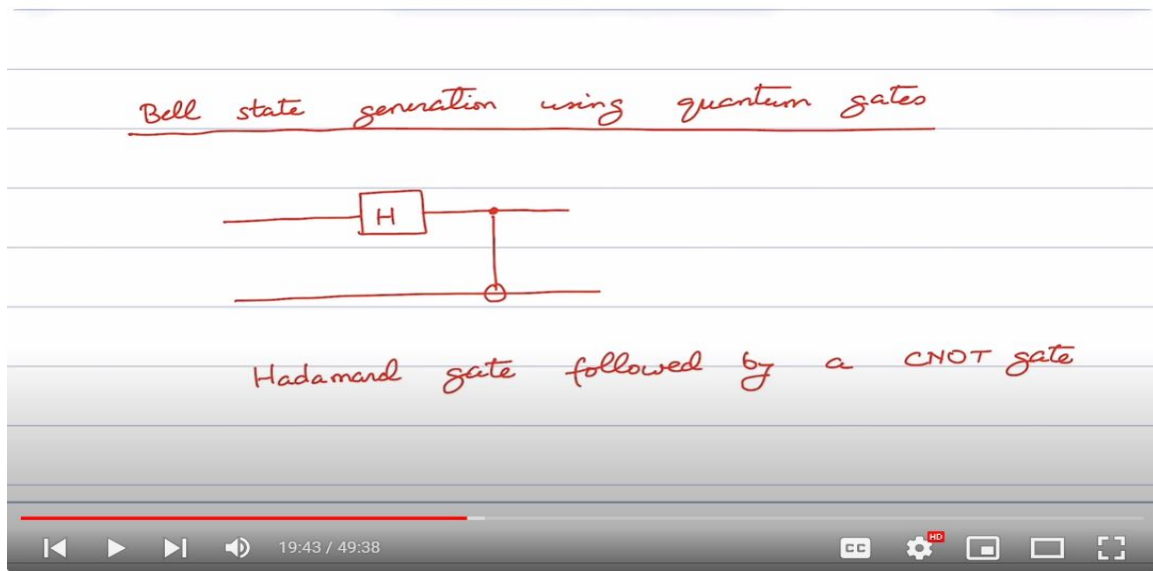 Bell state generation using quantum gates
H
Hadamard gate followed by a CNOT gate
19:43 / 49:38
CC
HD